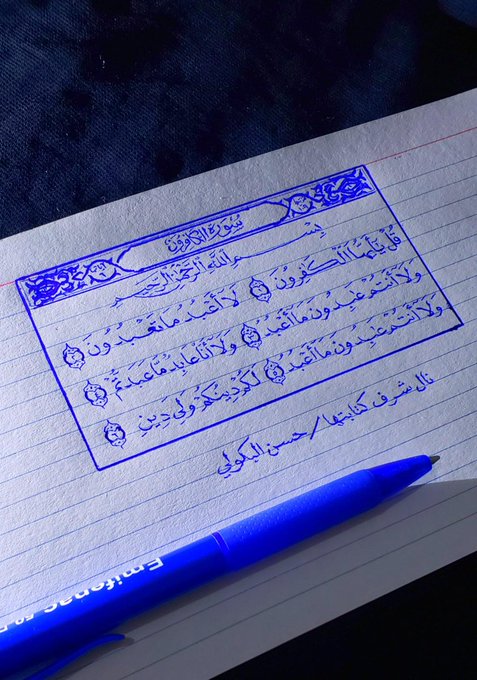 سُورَةُ الكَافِرُونَ
بِسْمِ اللَّهِ الرَّحْمَٰنِ الرَّحِيمِ
قُلْ يَٰٓأَيُّهَا ٱلْكَٰفِرُونَ ١ لَآ أَعْبُدُ مَا تَعْبُدُونَ ٢
وَلَآ أَنتُمْ عَٰبِدُونَ مَآ أَعْبُدُ ٣ وَلَآ أَنَا۠ عَابِدٌ مَّا عَبَدتُّمْ ٤
وَلَآ أَنتُمْ عَٰبِدُونَ مَآ أَعْبُدُ ٥ لَكُمْ دِينُكُمْ وَلِيَ دِينِ ٦
نال شرف كتابتها / حسن البكولي
Emifenac 50 D